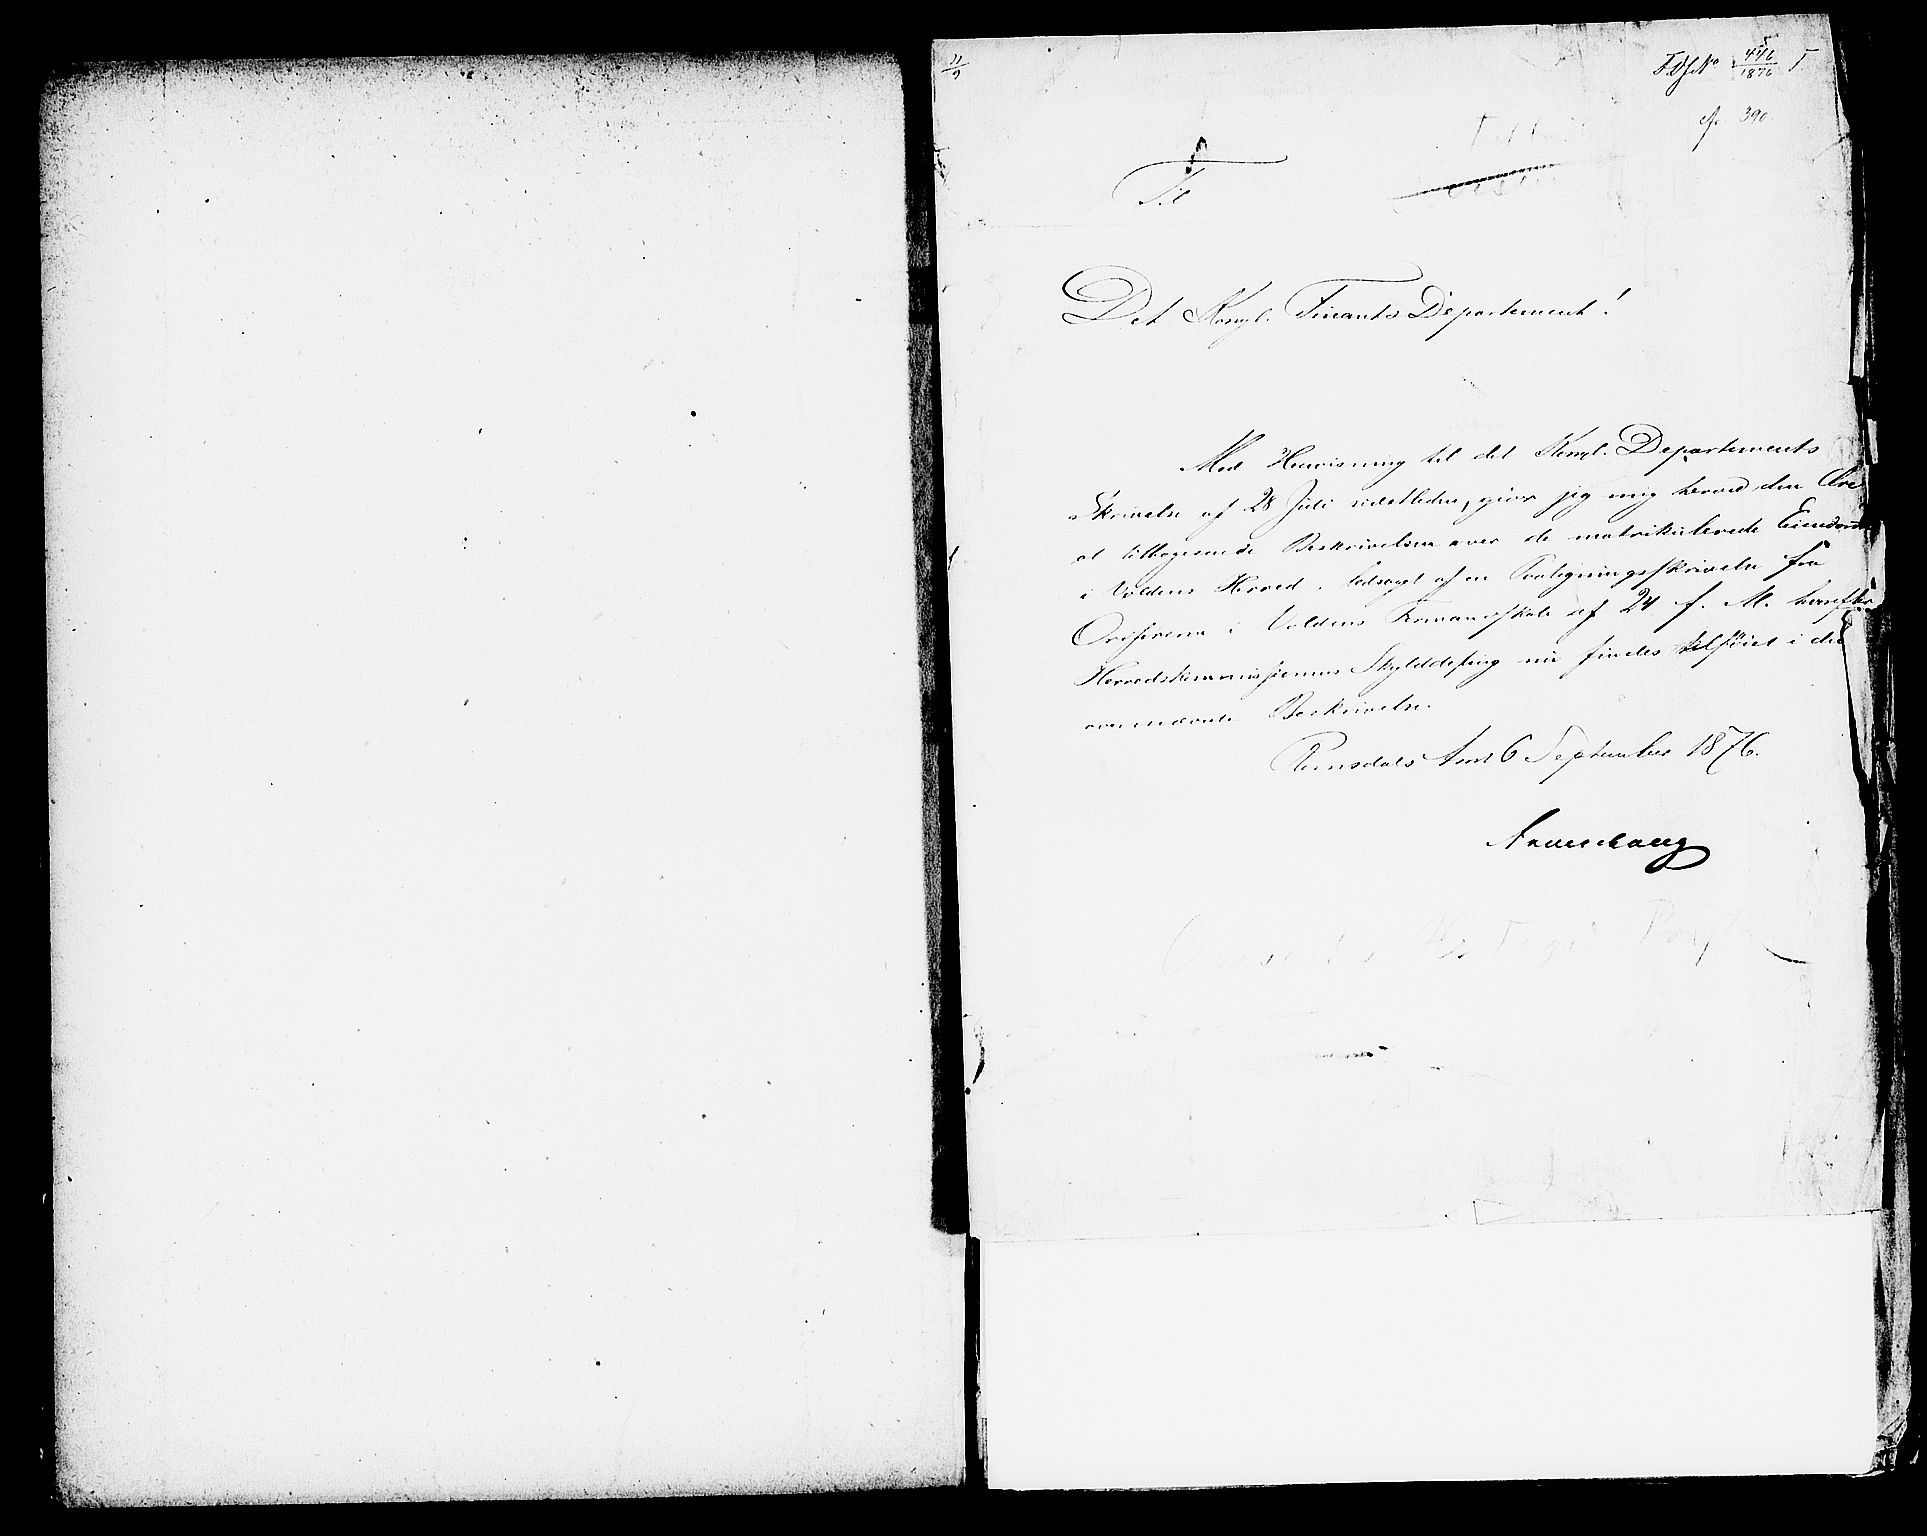 11/9
446/1876
390
Til
Det Kongl. Finants Departement!
Med Henvisning til det Kongl. Departements
Skrivelse af 28 Juli sidstleden, giver jeg mig herved den Ære
at tilbagesende Beskrivelsen over de matrikulerede Eiendomme
i Voldens Herred, ledsaget af en Paategningsskrivelse fra
Ordføreren i Voldens Formandskab af 24 f. M. hvorefter
Herredskommissionens Skylddeling nu findes tilføiet i den
ovennævnte Beskrivelse.
Romsdals Amt 6 September 1876.